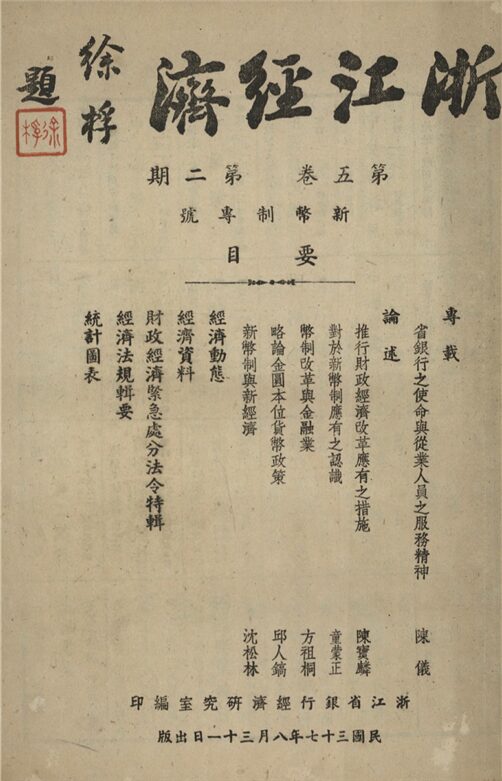 浙江經濟
徐桴
題
徐桴
第五卷 第二期
新幣制專號
要目
專載
省銀行之使命與從業人員之服務精神 陳儀
論述
推行財政經濟改革應有之措施 陳寶麟
對於新幣制應有之認識 童蒙正
幣制改革與金融業 方祖桐
略論金圓本位貨幣政策 邱人鎬
新幣制與新經濟 沈松林
經濟動態
經濟資料
財政經濟緊急處分法令特輯
經濟法規輯要
統計圖表
浙江省銀行經濟研究室編印
民國三十七年八月三十一日出版